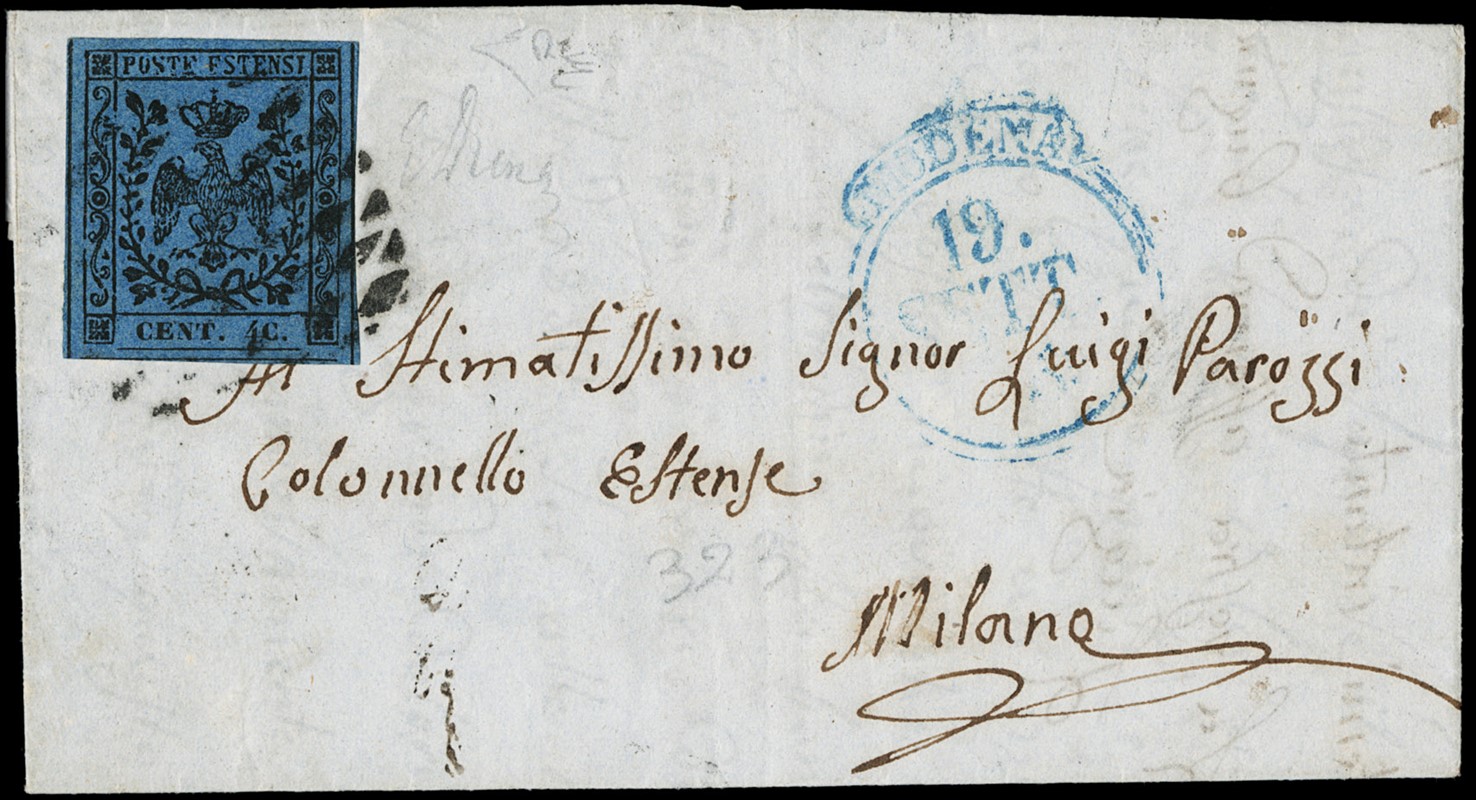 POSTE ESTENSI
CENT. 4C.
MODENA
19.
SETT
Al Stimatissimo Signor Luigi Parözzi
Colonnello Estense
323
Milano